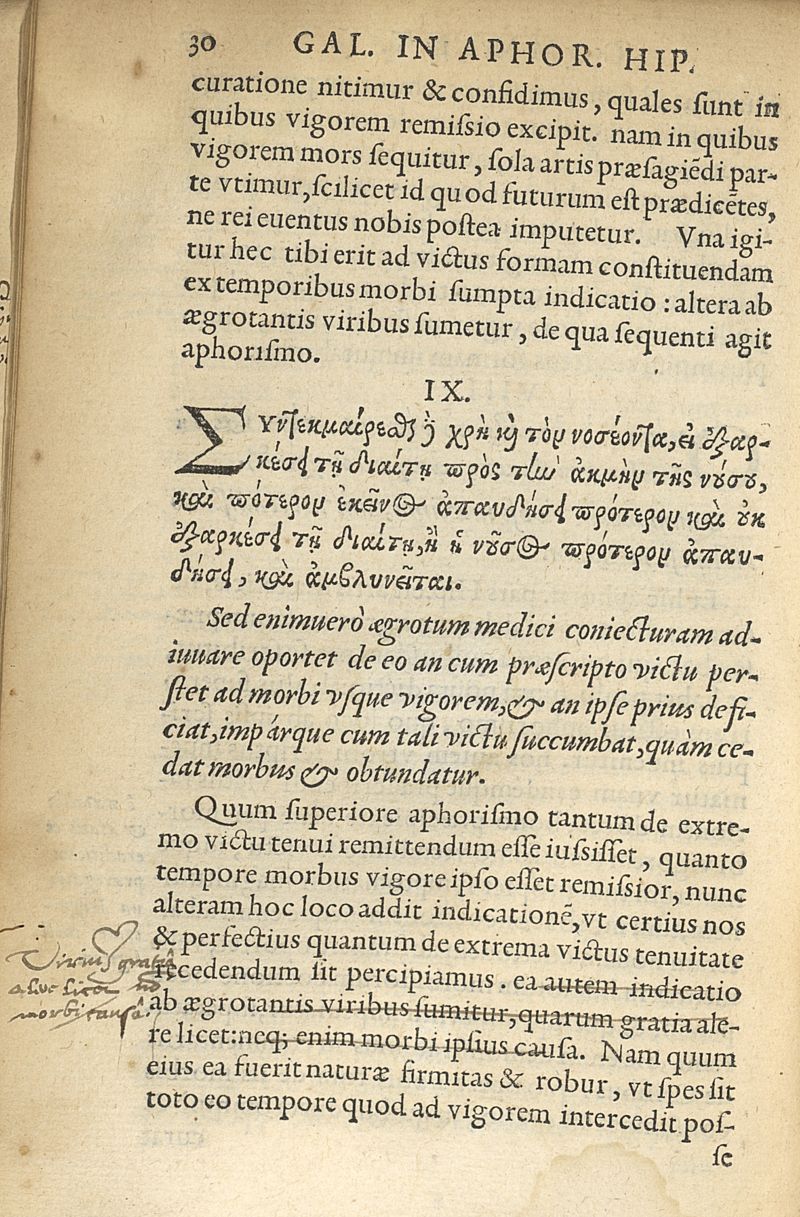 30 GAL. IN APHOR. HIP.
curatione nitimur & confidimus, quales ſunt in
quibus vigorem remiſsio excipit. nam in quibus
vigorem mors ſequitur, ſola artis præſagiẽdi par-
te vtimur, ſcilicet id quod futurum eſt prædicẽtes,
ne rei euentus nobis poſtea imputetur. Vna igi-
tur hec tibi erit ad victus formam conſtituendam
ex temporibus morbi ſumpta indicatio: altera ab
ægrotantis viribus ſumetur, de qua ſequenti agit
aphoriſmo.
IX.
Συντεκμαίρεσθαι ἢ χρὴ καὶ τὸν νοσέοντα, εἰ ἐξαρ-
κέσει τῇ διαίτῃ πρὸς τὴν ἀκμὴν τῆς νούσου,
καὶ πότερον ἐκεῖνος ἀπαυδήσει πρότερον καὶ οὐκ
ἐξαρκέσει τῇ διαίτῃ, ἢ ἡ νοῦσος πρότερον ἀπαυ-
δήσει, καὶ ἀμβλυνεῖται.
Sed enimuerò ægrotum medici coniecturam ad-
iuuare oportet de eo an cum præſcripto victu per-
ſtet ad morbi vſque vigorem, & an ipſe prius defi-
ciat, impárque cum tali victu ſuccumbat, quàm ce-
dat morbus & obtundatur.
Quum ſuperiore aphoriſmo tantum de extre-
mo victu tenui remittendum eſſe iuſsiſſet, quanto
tempore morbus vigore ipſo eſſet remiſsior, nunc
alteram hoc loco addit indicationẽ, vt certius nos
& perfectius quantum de extrema victus tenuitate
recedendum ſit percipiamus. ea autem indicatio
ab ægrotantis viribus ſumitur, quarum gratia ale-
re licet: neq; enim morbi ipſius cauſa. Nam quum
eius ea fuerit naturæ firmitas & robur, vt ſpes ſit
toto eo tempore quod ad vigorem intercedit poſ-
ſe
gratiâ
morbi causâ.